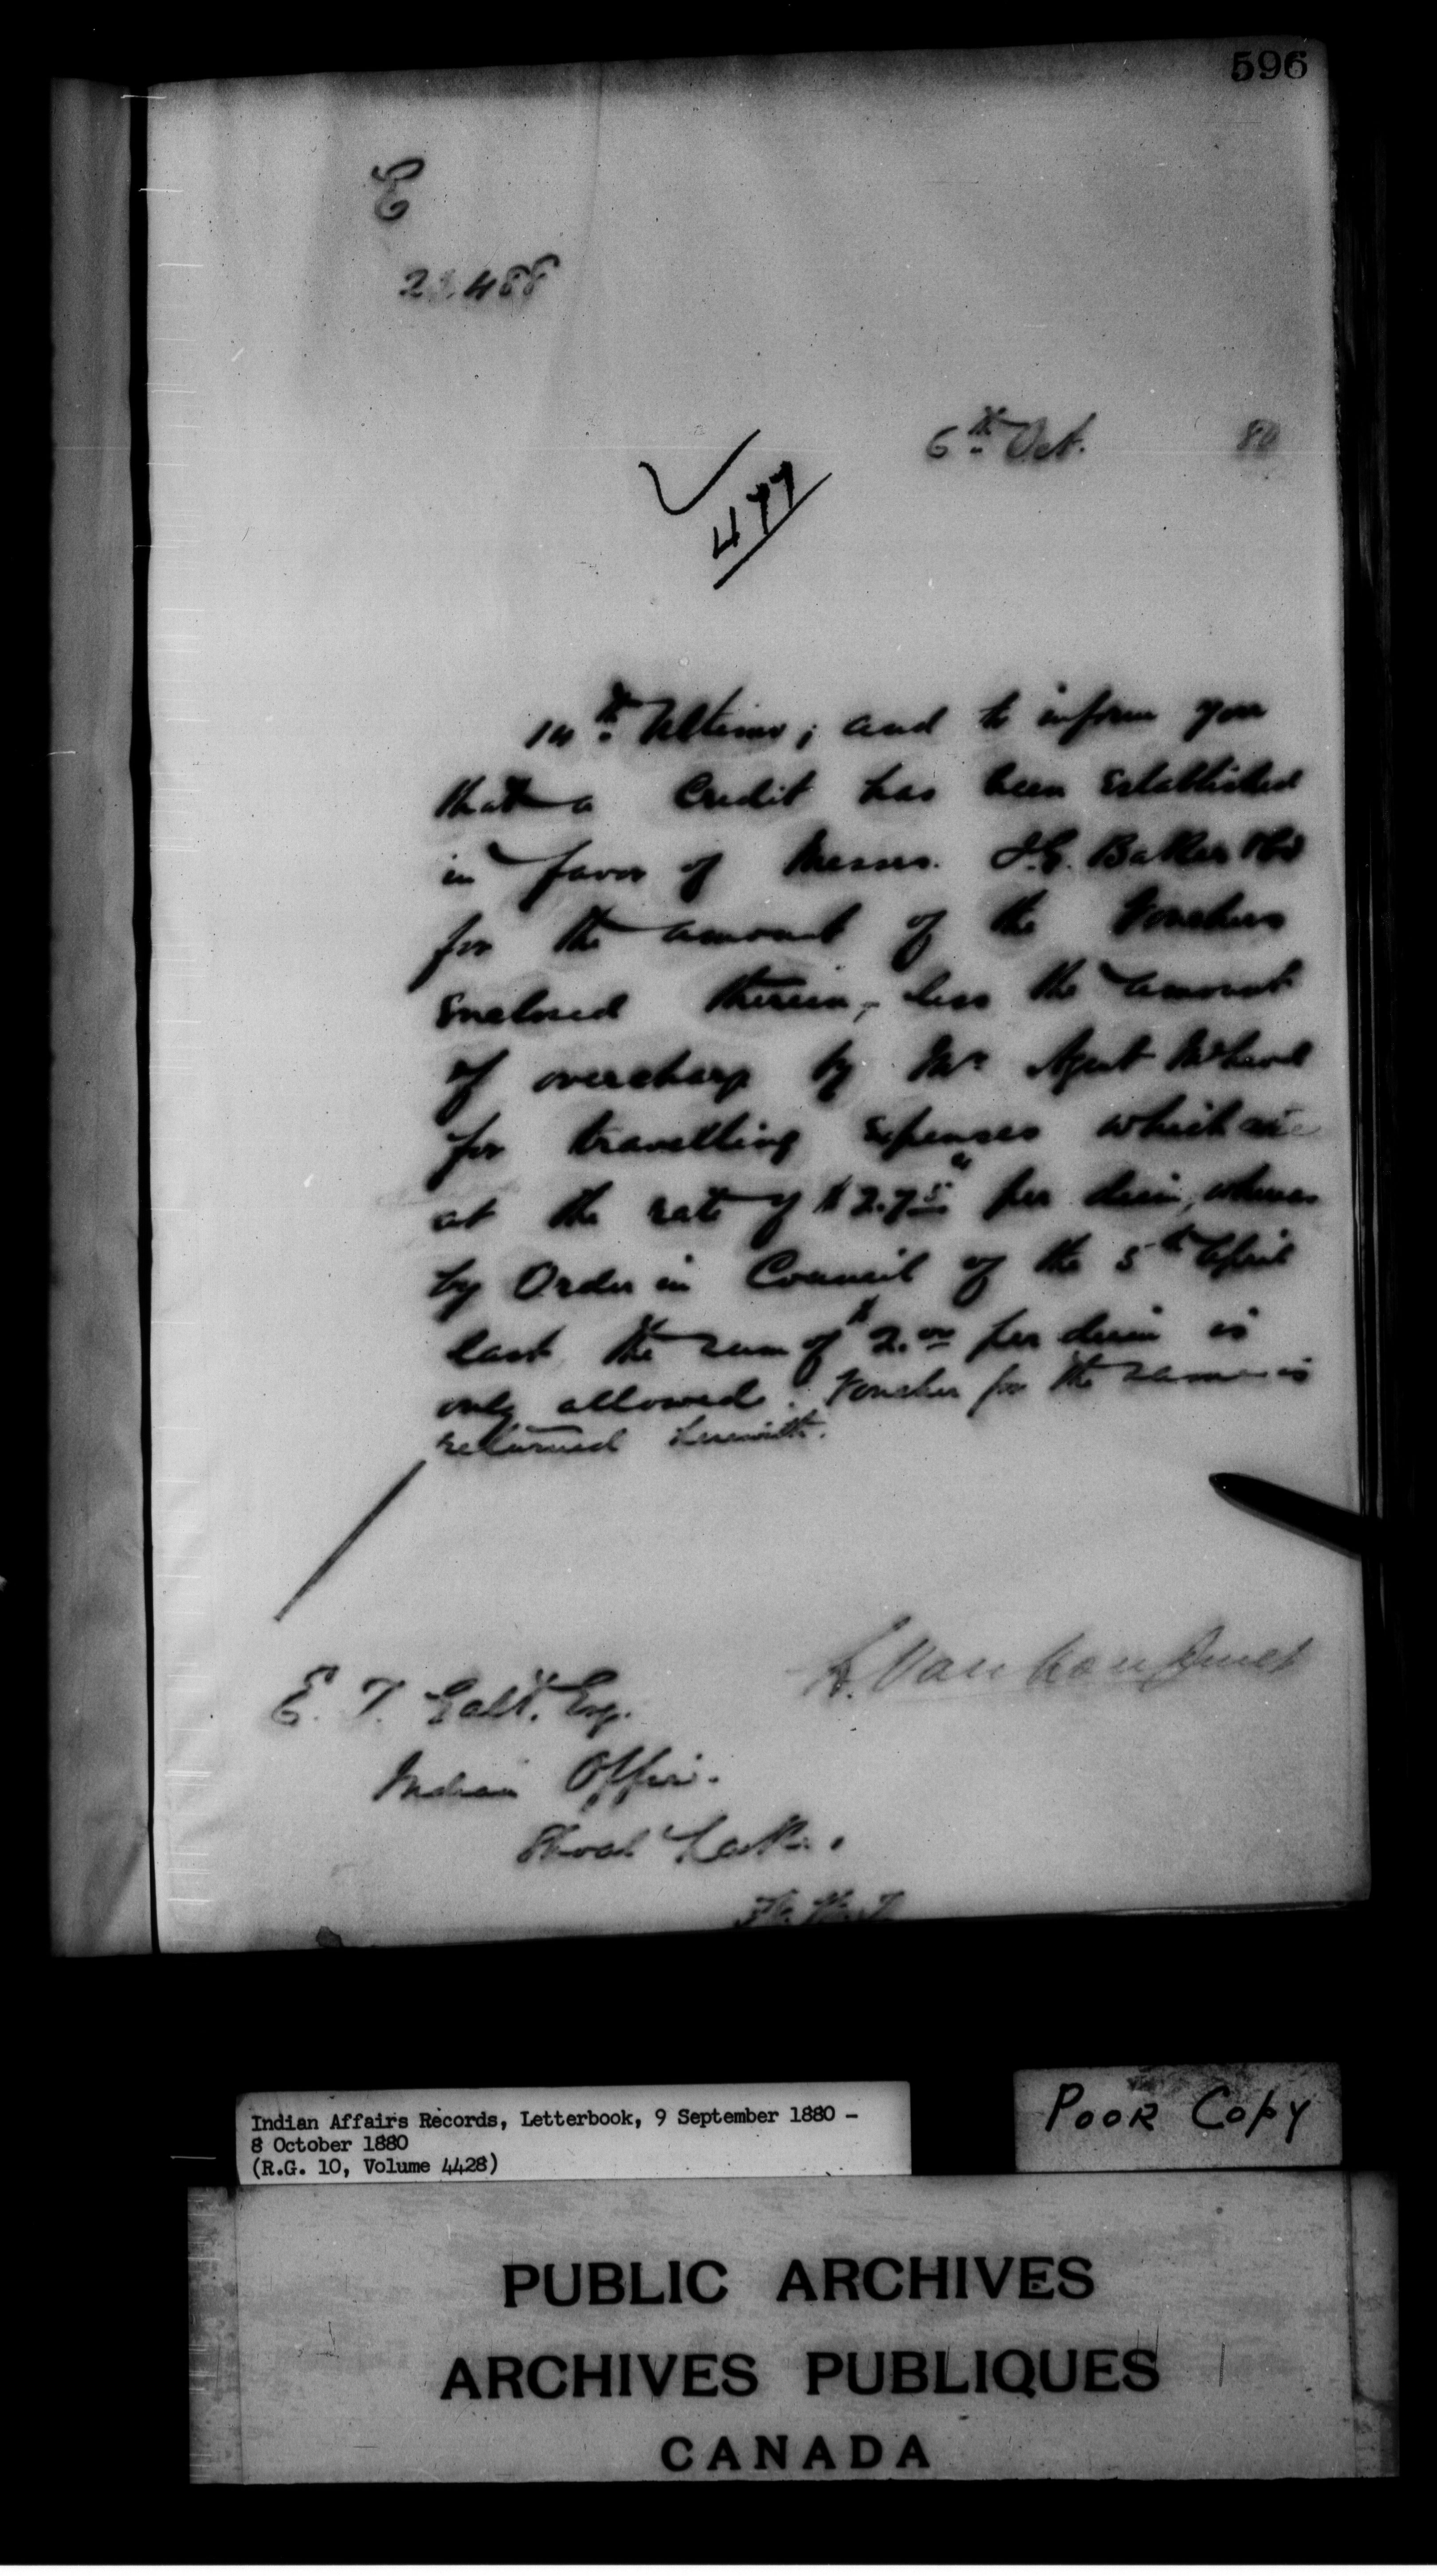 596
E
22488
6th Oct. 80
477
14th Ultimo; and to inform you
that a Credit has been Established
in favor of Messrs. I.G. Baker & Co
for the amount of the Vouchers
Enclosed therein, less the amount
of overcharge by Mr Agent
for travelling Expenses which are
at the rate of $2.75 per diem, whereas
by Order in Council of the 5th April
last the sum of $2.00 per diem is
only allowed. Voucher for the same is
returned herewith.
L. Vankoughnet
E. T. Galt, Esq.
Indian Office.
Shoal Lake.
N.W.T.
Indian Affairs Records, Letterbook, 9 September 1880 -
8 October 1880
(R.G. 10, Volume 4428)
POOR COPY
PUBLIC ARCHIVES
ARCHIVES PUBLIQUES
CANADA